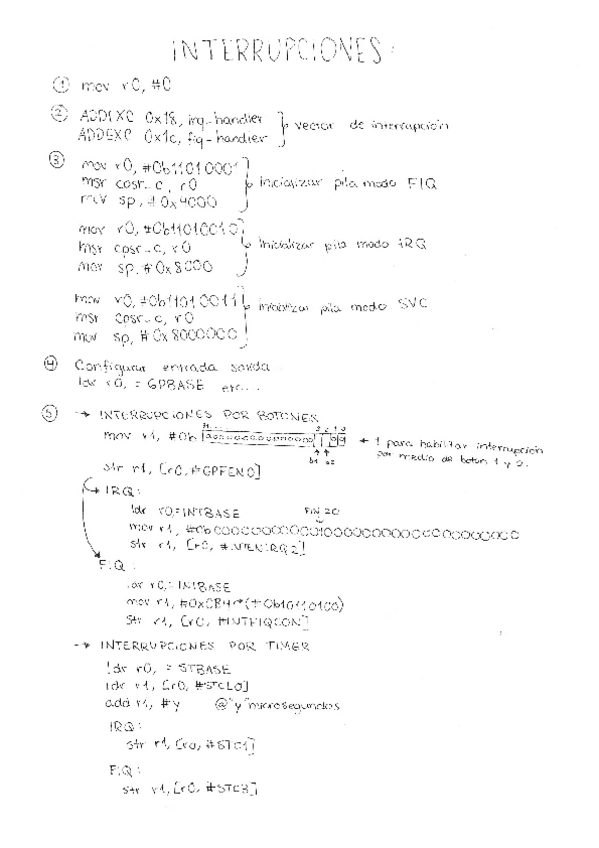 INTERRUPCIONES:
① mov r0, #0
② ADDEXC 0x18, irq_handler
ADDEXC 0x1c, fiq_handler
vector de interrupción
③ mov r0, #0b11010001
msr cpsr_c, r0
mov sp, #0x4000
inicializar pila modo FIQ
mov r0, #0b11010010
msr cpsr_c, r0
mov sp, #0x8000
inicializar pila modo IRQ
mov r0, #0b11010011
msr cpsr_c, r0
mov sp, #0x8000000
inicializar pila modo SVC
④ Configurar entrada salida
ldr r0, =GPBASE etc...
⑤ → INTERRUPCIONES POR BOTONES
3 2 1 0
mov r1, #0b
← 1 para habilitar interrupción
por medio de boton 1 y 2.
b1 b2
str r1, [r0, #GPFEN0]
IRQ:
ldr r0,=INTBASE
mov r1, #0b00000000000100000000000000000000
str r1, [r0, #INTENIRQ2]
FIQ:
ldr r0,=INTBASE
mov r1, #0x0B4 (#0b10110100)
str r1, [r0, #INTFIQCON]
→ INTERRUPCIONES POR TIMER
ldr r0, = STBASE
ldr r1, [r0, #STCLO]
add r1, #y @"y"microsegundos
IRQ:
str r1, [r0, #STC1]
FIQ:
str r1, [r0, #STC3]